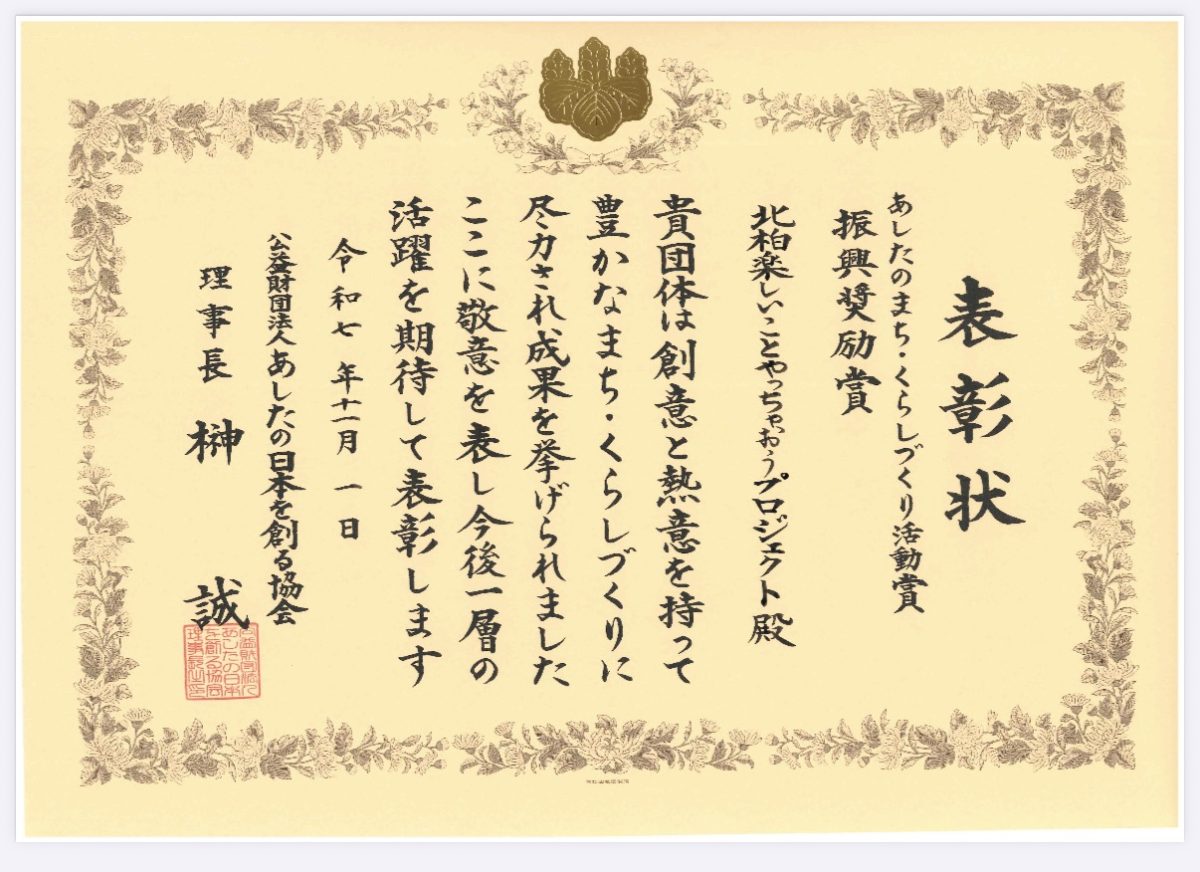 表彰状
あしたのまち・くらしづくり活動賞
振興奨励賞
北柏楽しいことやっちゃおうプロジェクト殿
貴団体は創意と熱意を持って
豊かなまち・くらしづくりに
尽力され成果を挙げられました
ここに敬意を表し今後一層の
活躍を期待して表彰します
令和七年十一月一日
公益財団法人あしたの日本を創る協会
理事長 榊 誠
公益財団法人
あしたの日本
を創る協会
理事長之印